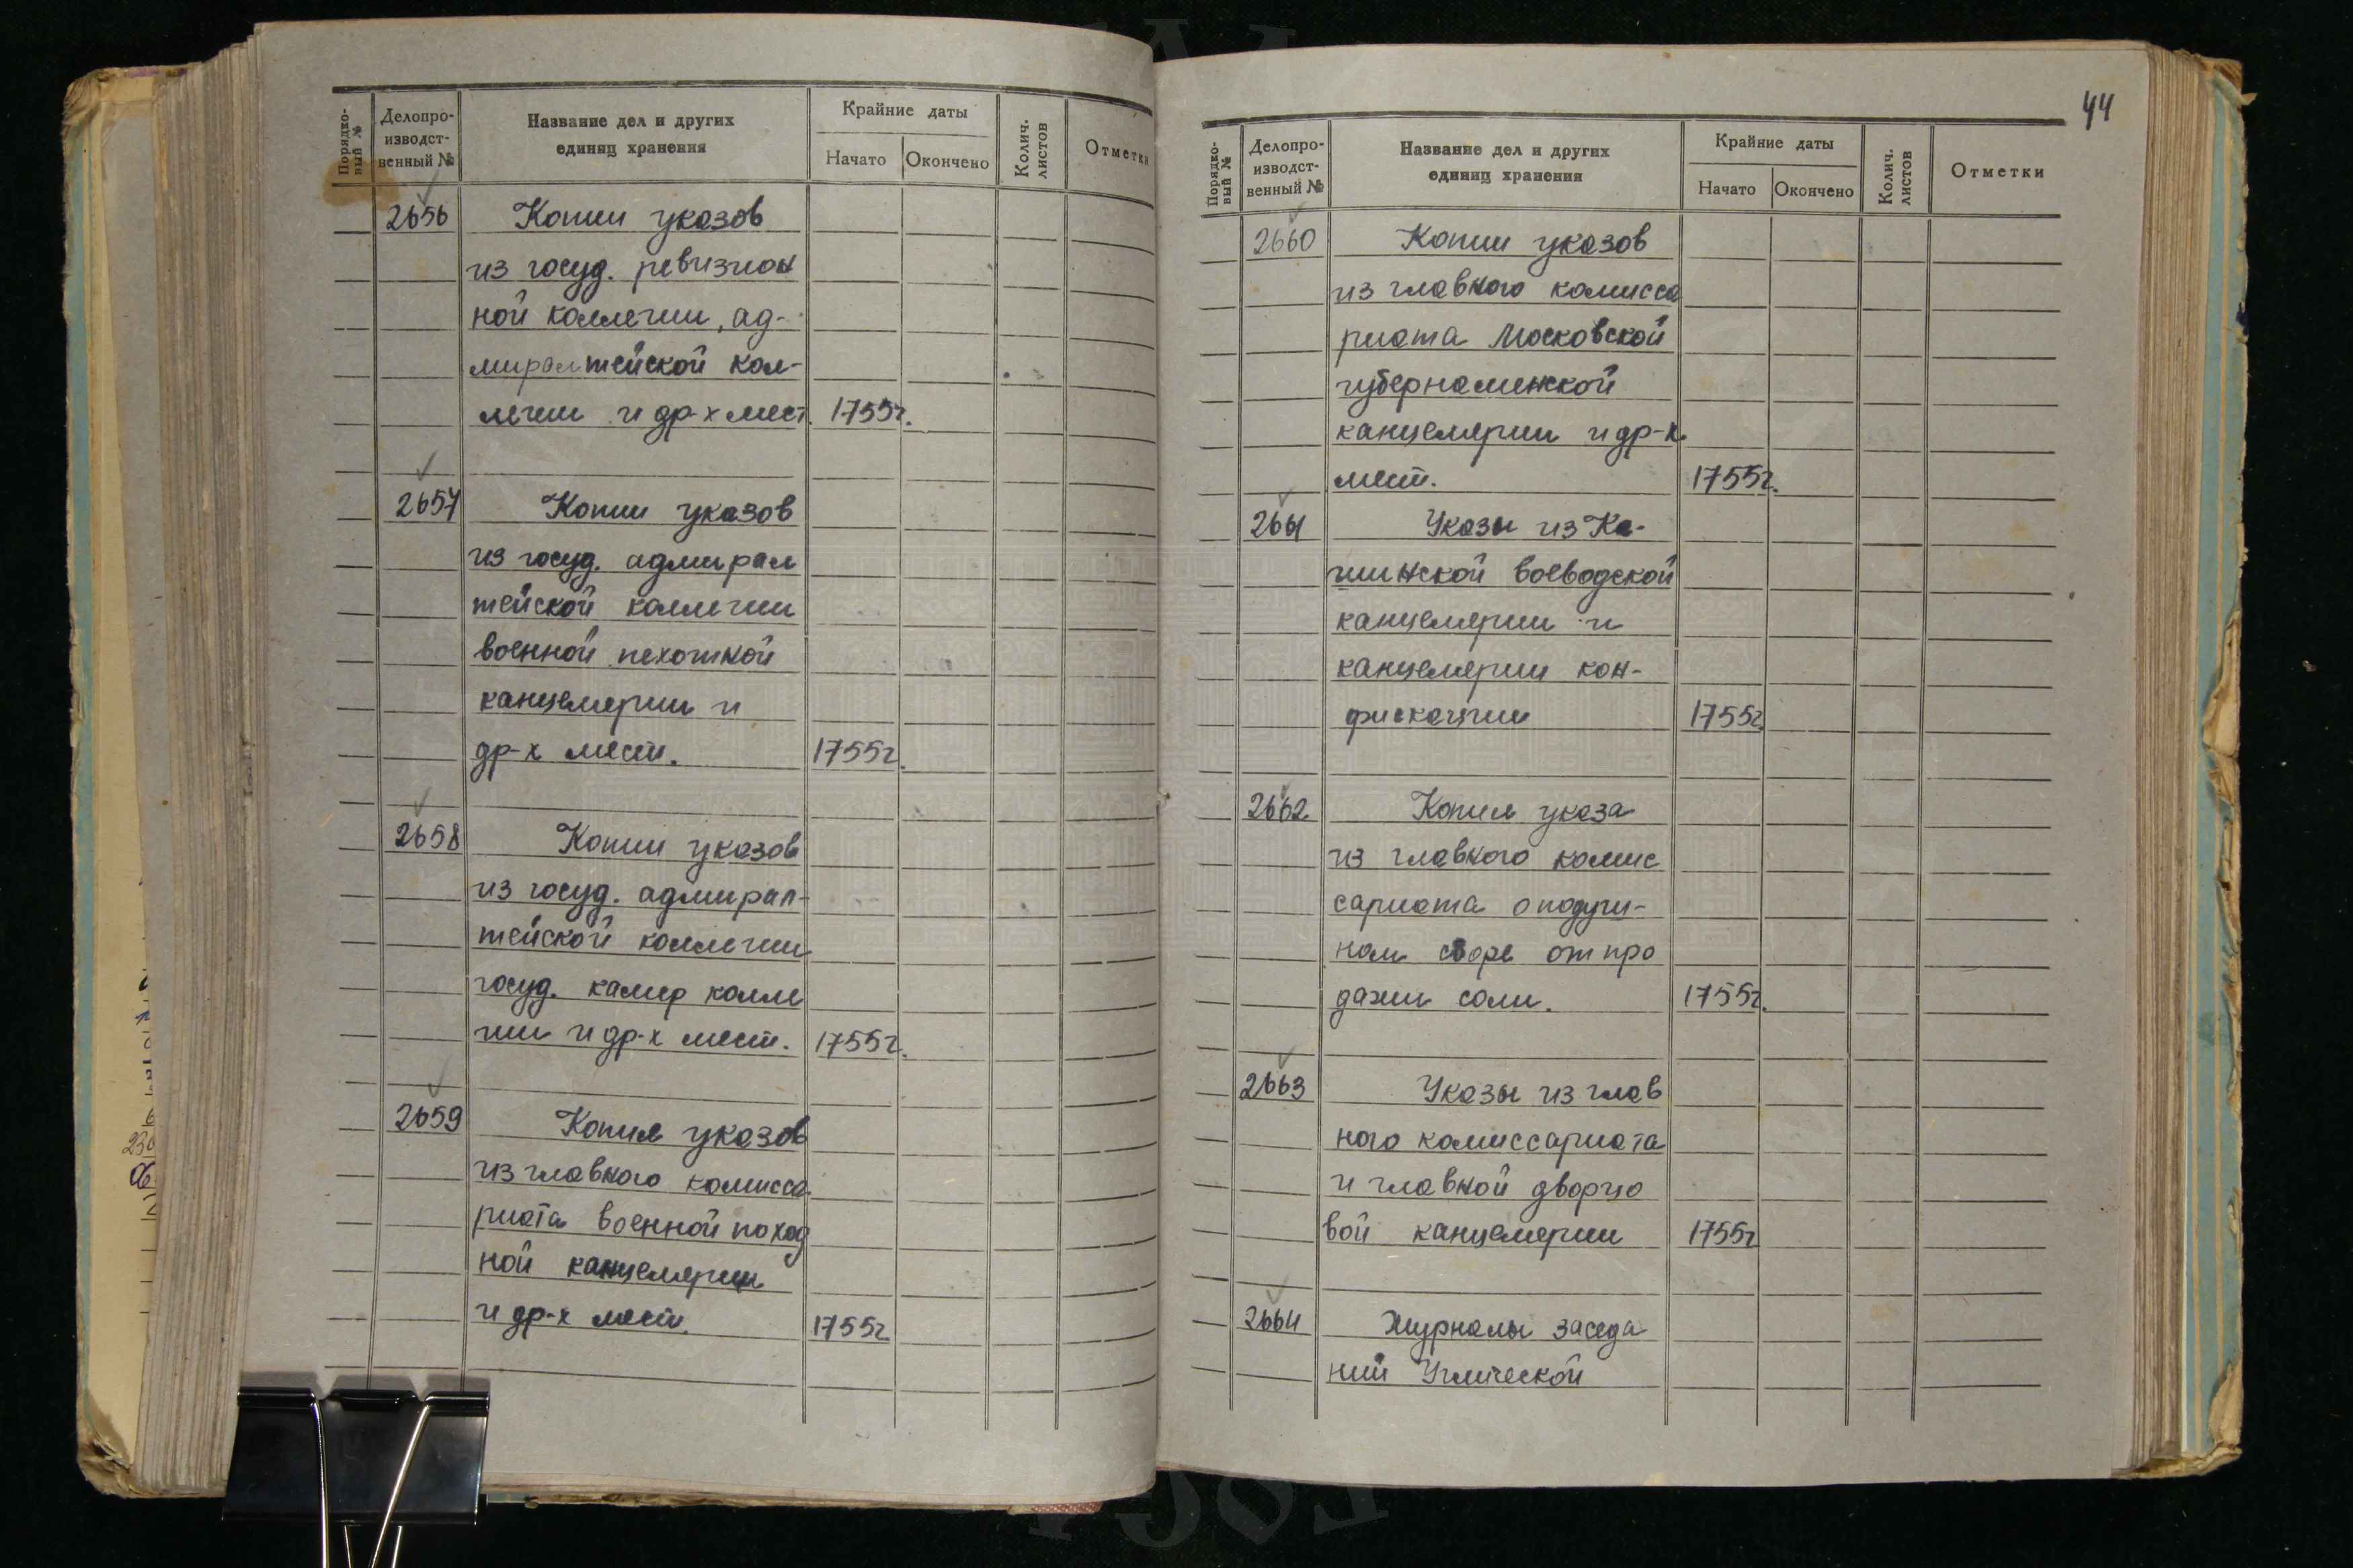 Порядко-
вый №
Делопро-
изводст-
венный №
Название дел и других
единиц хранения
Крайние даты
Начато
Окончено
Колич.
листов
Отметки
2656
Копии указов
из госуд. ревизион
ной коллегии, ад-
миралтейской кол-
легии и др-х мест. 1755г.
2657
Копии указов
из госуд. адмирал
тейской коллегии
военной пехотной
канцелярии и
др-х мест. 1755г.
2658
Копии указов
из госуд. адмирал-
тейской коллегии
госуд. камер колле
гии и др-х мест. 1755г.
2659
Копия указов
из главного комисса
риата военной поход
ной канцелярии
и др-х мест. 1755г
44
Порядко-
вый №
Делопро-
изводст-
венный №
Название дел и других
единиц хранения
Крайние даты
Начато
Окончено
Колич.
листов
Отметки
2660
Копии указов
из главного комисса
риата Московской
губернаменской
канцелярии и др-х
мест. 1755г.
2661
Указы из Ка-
шинской воеводской
канцелярии и
канцелярии кон-
фискации 1755г.
2662
Копия указа
из главного комис
сариата о подуш-
ном сборе от про
дажи соли. 1755г.
2663
Указы из глав
ного комиссариата
и главной дворцо
вой канцелярии 1755г
2664
Журналы заседа
ний Угличской